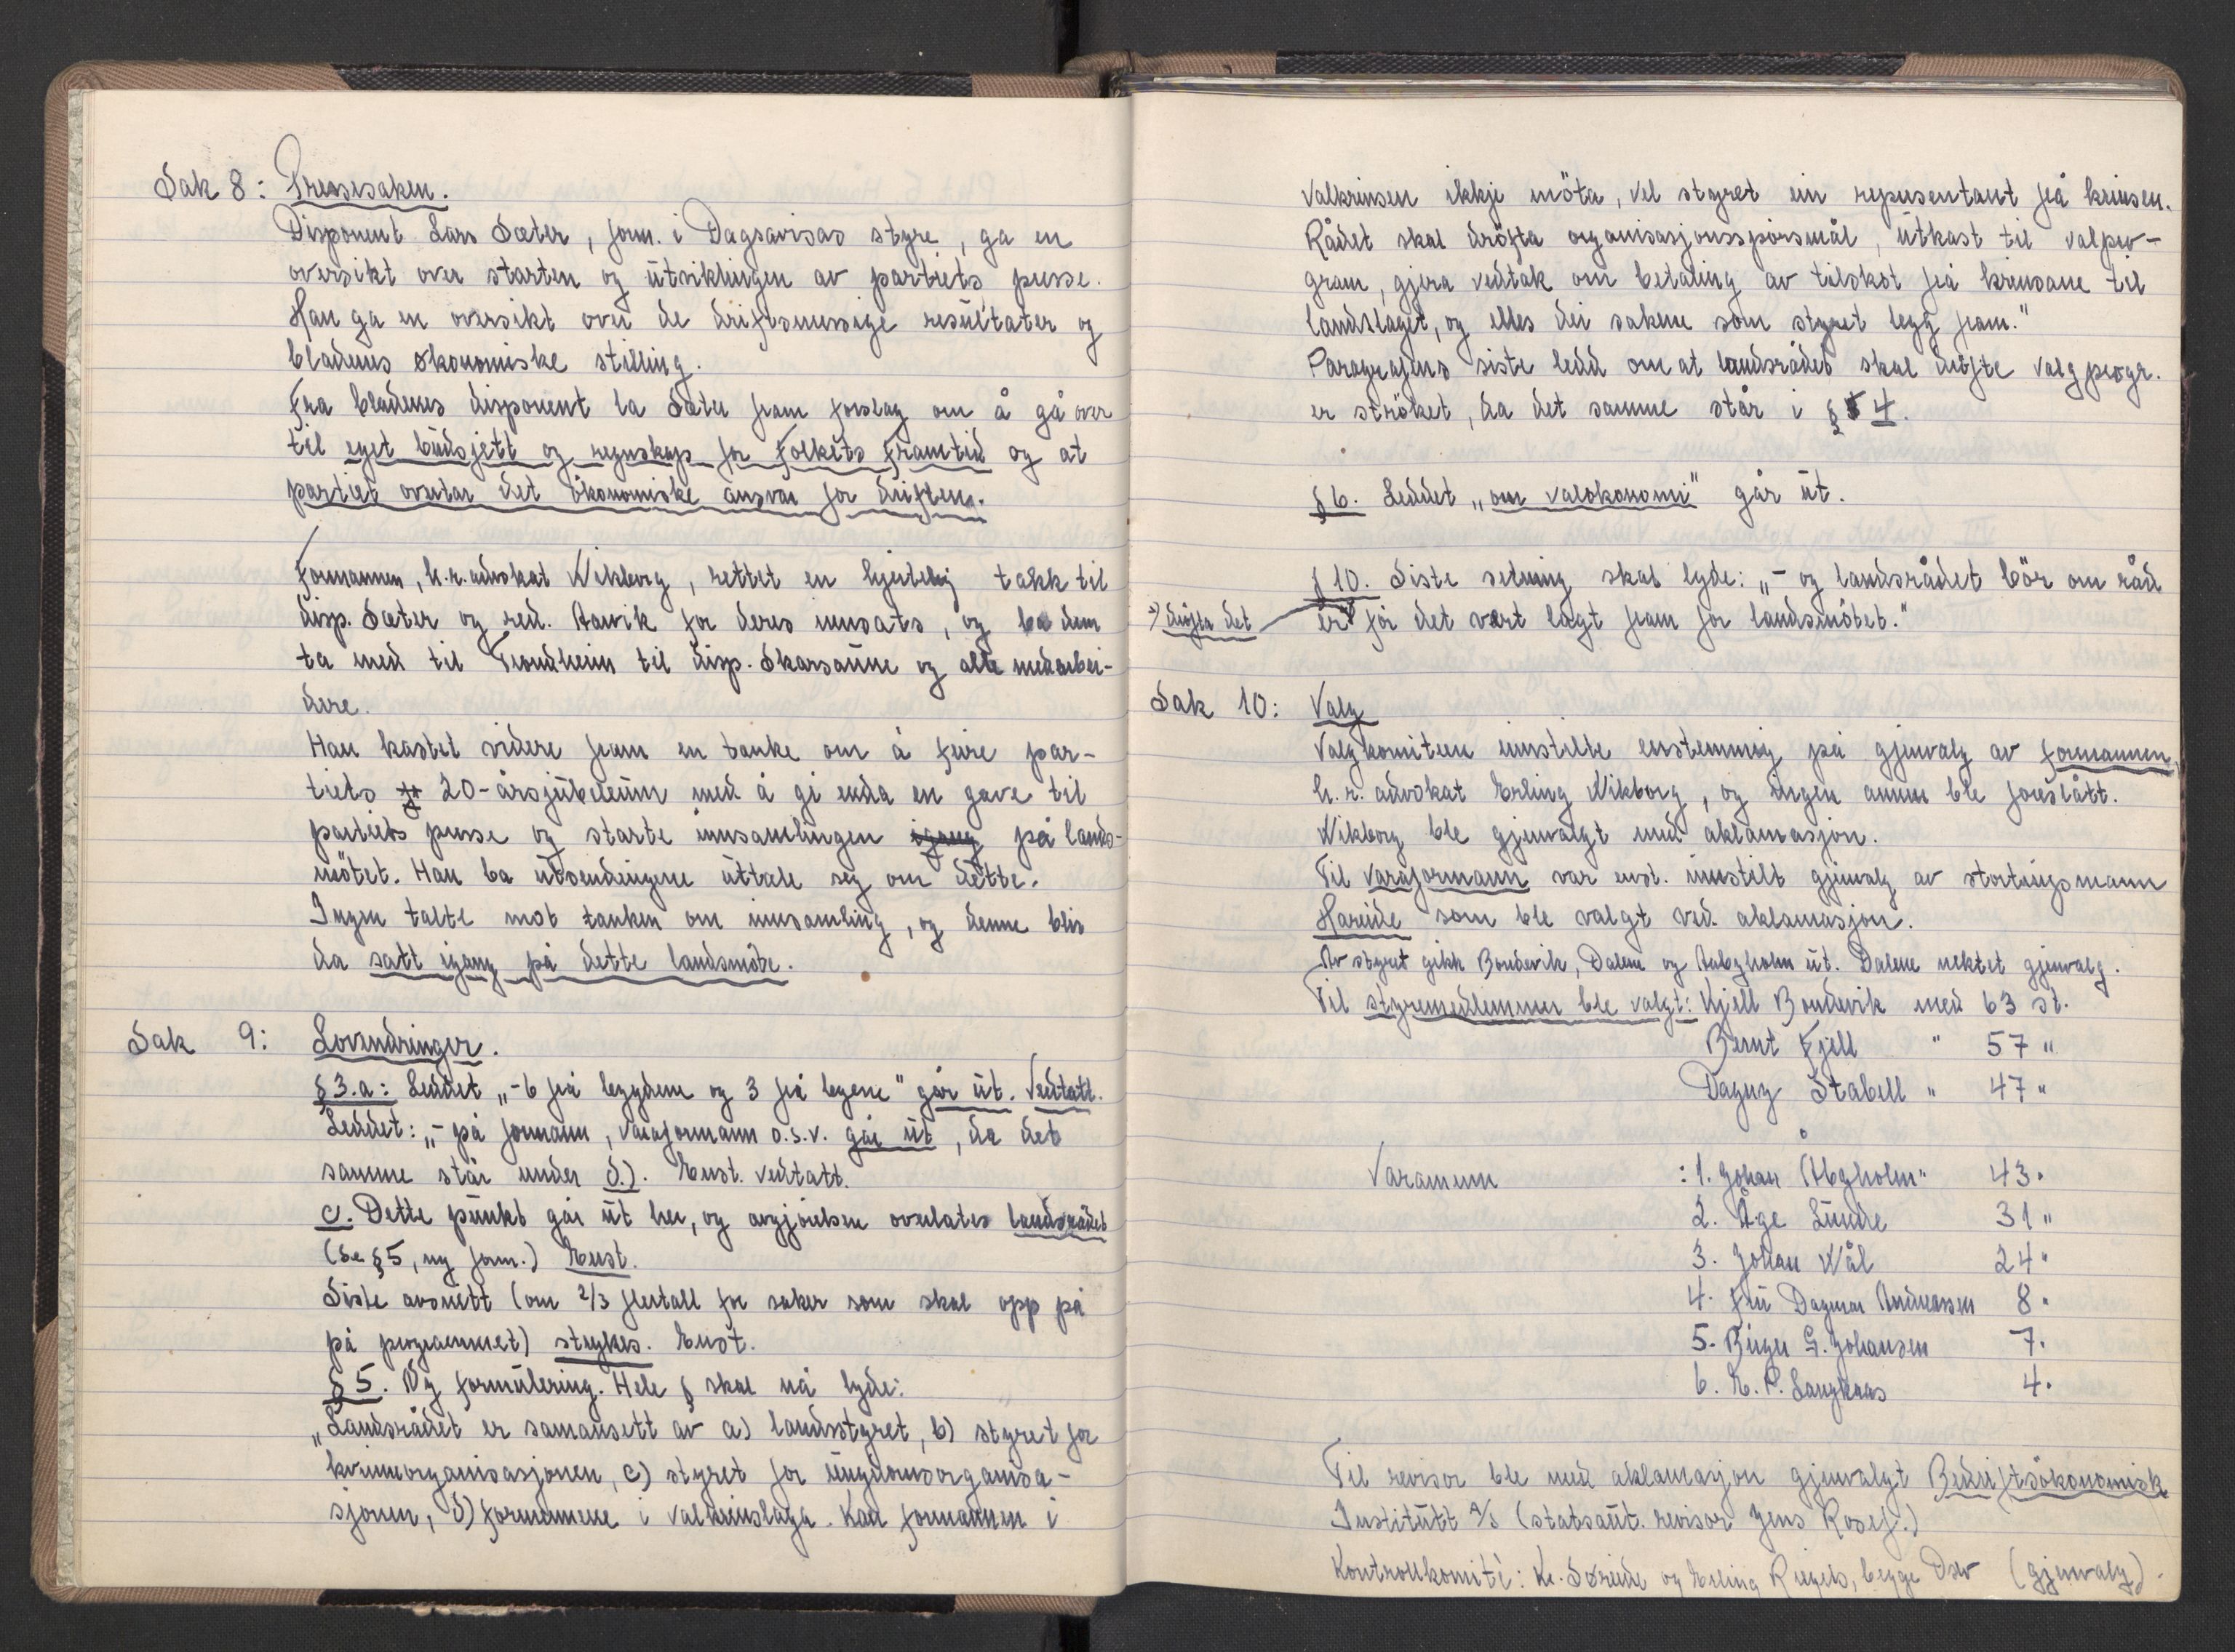 Sak 8: Pressesaken.
Disponent Lars Sæter, form. i Dagsavisas styre, ga en
oversikt over starten og utviklingen av partiets presse.
Han ga en oversikt over de driftsmessige resultater og
bladenes økonomiske stilling.
Fra bladenes disponent la Sæter fram forslag om å gå over
til eget budsjett og regnskap for Folkets Framtid og at
partiet overtar det ökonomiske ansvar for driften.
Formannen, h.r.advokat Wikborg, rettet en hjertelig takk til
disp. Sæter og red. Aarvik for deres innsats, og ba dem
ta med til Trondheim til disp. Skarsaune og alle medarbei-
dere.
Han kastet videre fram en tanke om å feire par-
tiets 20-årsjubileum med å gi enda en gave til
partiets presse og starte innsamlingen igang på lands-
mötet. Han ba utsendingene uttale seg om dette.
Ingen talte mot tanken om innsamling, og denne blir
da satt igang på dette landsmöte.
Sak 9: Lovendringer.
§ 3.a: Leddet „-6 frå bygdene og 3 frå byene" går ut. Vedtatt.
Leddet: „- på formann, varaformann o.s.v. går ut, da det
samme står under d.). Enst. vedtatt.
c. Dette punkt går ut her, og avgjörelsen overlates landsrådet
(Se § 5, ny form.) Enst.
Siste avsnitt (om 2/3 flertall for saker som skal opp på
på programmet) strykes. Enst.
§ 5. Ny formulering. Hele § skal nå lyde:
„Landsrådet er samansett av a) landsstyret, b) styret for
kvinneorganisasjonen, c) styret for ungdomsorganisa-
sjonen, d) formennene i valkrinslaga. Kan formannen i
Valkrinsen ikkje möta, vel styret ein representant frå krinsen.
Rådet skal dröfta organisasjonsspörsmål, utkast til valpro-
gram, gjera vedtak om betaling av tilskot frå krinsane til
landslaget, og elles dei sakene som styret legg fram."
Paragrafens siste ledd om at landsrådet skal dröfte valgprogr.
er ströket, da det samme står i § 4.
§ 6. Leddet „om valøkonomi" går ut.
§ 10. Siste setning skal lyde: „- og landsrådet bör om råd
dröfta det er för det vert lagt fram for landsmötet."
Sak 10: Valg
Valgkomiteen innstilte enstemmig på gjenvalg av formannen,
h.r. advokat Erling Wikborg, og ingen annen ble foreslått.
Wikborg ble gjenvalgt med aklamasjon.
Til varaformann var enst. innstilt gjenvalg av stortingsmann
Hareide som ble valgt ved aklamasjon.
Av styret gikk Bondevik, Dalene og Aabgholm ut. Dalene nektet gjenvalg.
Til styremedlemmer ble valgt: Kjell Bondevik med 63 st.
Bernt Fjell " 57 "
Dagny Stabell " 47 "
Varamenn : 1. Johan Åbgholm " 43 "
2. Åge Lunde 31 "
3. Johan Wål 24 "
4. Fru Dagmar Andreassen 8 "
5. Birger G. Johansen 7 "
6. E. P. Langkaas 4 "
Til revisor ble med aklamasjon gjenvalgt Bedriftsökonomisk
Institutt A/S (statsaut. revisor Jens Rosef.)
Kontrollkomité: Kr. Søreide og Erling Riegels, begge Oslo (gjenvalg).